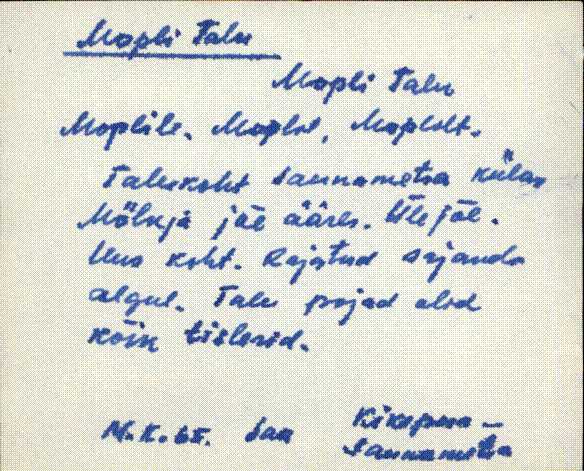 Mopli Talu
Mopli Talu
Moplile. Moplil, Moplilt.
Talukoht Saunametsa külas
Mõluja jõe ääres. Üle jõe.
Uus koht. Rajatud sajandi
algul. Talu pojad olid
kõik tislerid.
M.K. 65. Jaa Kikepera –
Saunametsa